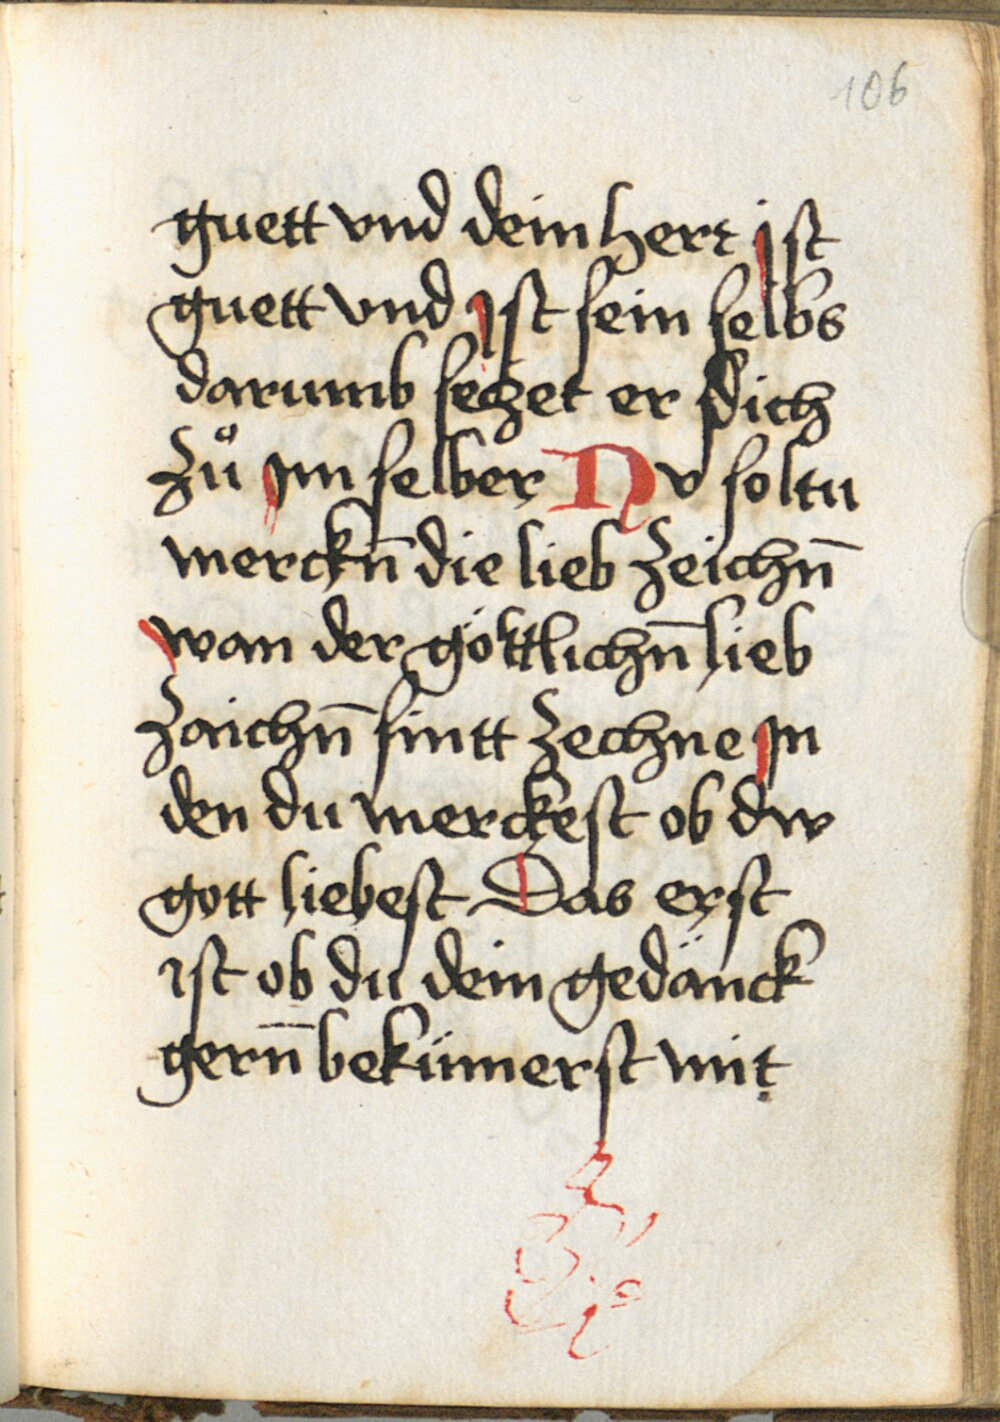 106
guett vnd dein herr ist
guett vnd Ist sein selbs
darumb seczet er dich
zů Im selber Nv soltu
merckn̄ die lieb zeichn̄
wan der göttlichn̄ lieb
zaichn̄ sintt zechne In
den du merckest ob dw
gott liebest Das erst
ist ob du dein gedänck
gern̄ bekümerst mit